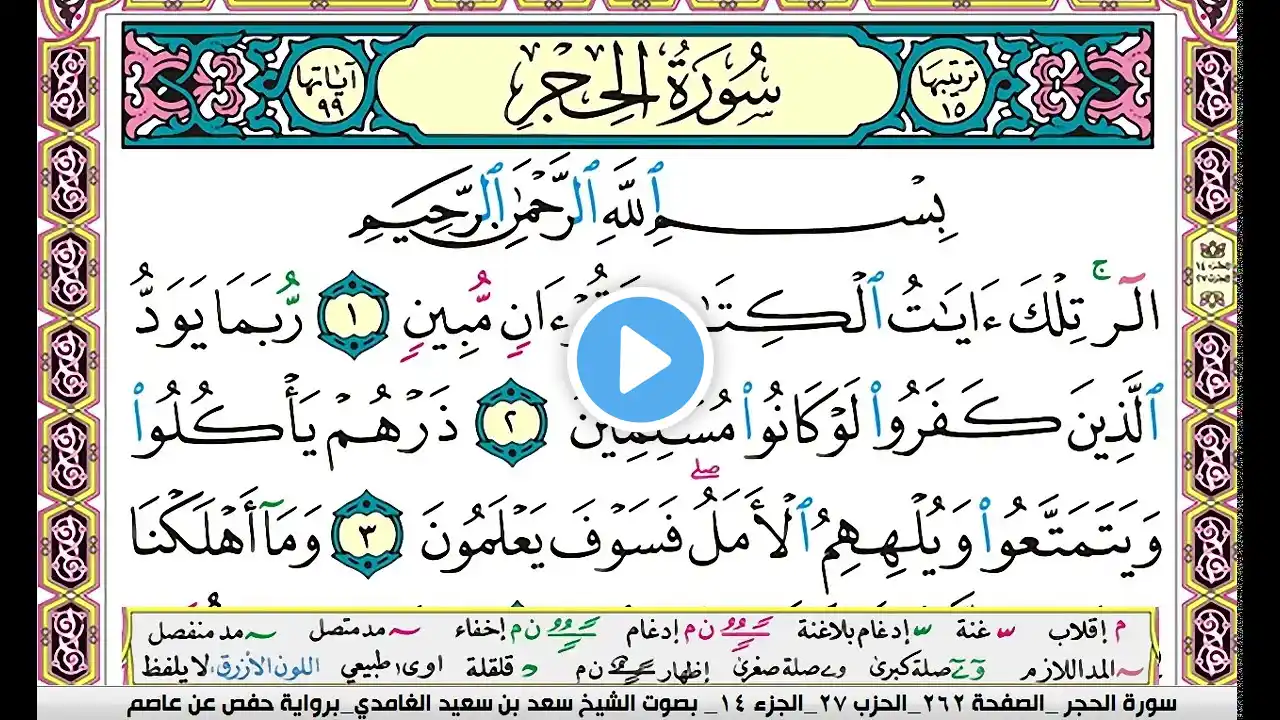 ترتيبها ١٥
سُورَةُ الحِجْرِ
آياتها ٩٩
بِسْمِ ٱللَّهِ ٱلرَّحْمَٰنِ ٱلرَّحِيمِ
الٓر ۚ تِلْكَ ءَايَٰتُ ٱلْكِتَٰ ءَانٍ مُّبِينٍ ١ رُّبَمَا يَوَدُّ
ٱلَّذِينَ كَفَرُوا۟ لَوْ كَانُوا۟ مُسْلِمِينَ ٢ ذَرْهُمْ يَأْكُلُوا۟
وَيَتَمَتَّعُوا۟ وَيُلْهِهِمُ ٱلْأَمَلُ ۖ فَسَوْفَ يَعْلَمُونَ ٣ وَمَآ أَهْلَكْنَا
م إقلاب غنة إدغام بلاغنة ن م إدغام ن م إخفاء مد متصل مد منفصل
المد اللازم صلة كبرى صلة صغرى إظهار ن م قلقلة اوى طبيعي اللون الأزرق لا يلفظ
سورة الحجر _الصفحة ٢٦٢_الحزب ٢٧_الجزء ١٤_ بصوت الشيخ سعد بن سعيد الغامدي_برواية حفص عن عاصم